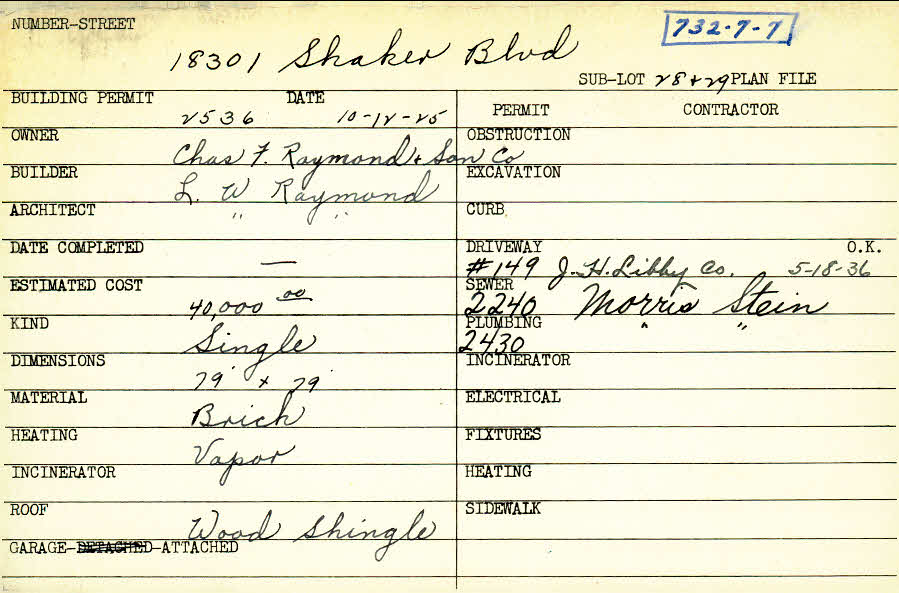 NUMBER-STREET
732-7-7
18301 Shaker Blvd
SUB-LOT 28+29 PLAN FILE
BUILDING PERMIT DATE
2536 10-12-25
OWNER
Chas F. Raymond + Son Co
BUILDER
L. W Raymond
ARCHITECT
" "
DATE COMPLETED
—
ESTIMATED COST
40,000 00
KIND
Single
DIMENSIONS
79' x 79'
MATERIAL
Brick
HEATING
Vapor
INCINERATOR
ROOF
Wood Shingle
GARAGE-DETACHED-ATTACHED
PERMIT CONTRACTOR
OBSTRUCTION
EXCAVATION
CURB
DRIVEWAY O.K.
#149 J. H. Libby Co. 5-18-36
SEWER
2240 Morris Stein
PLUMBING " "
2430
INCINERATOR
ELECTRICAL
FIXTURES
HEATING
SIDEWALK